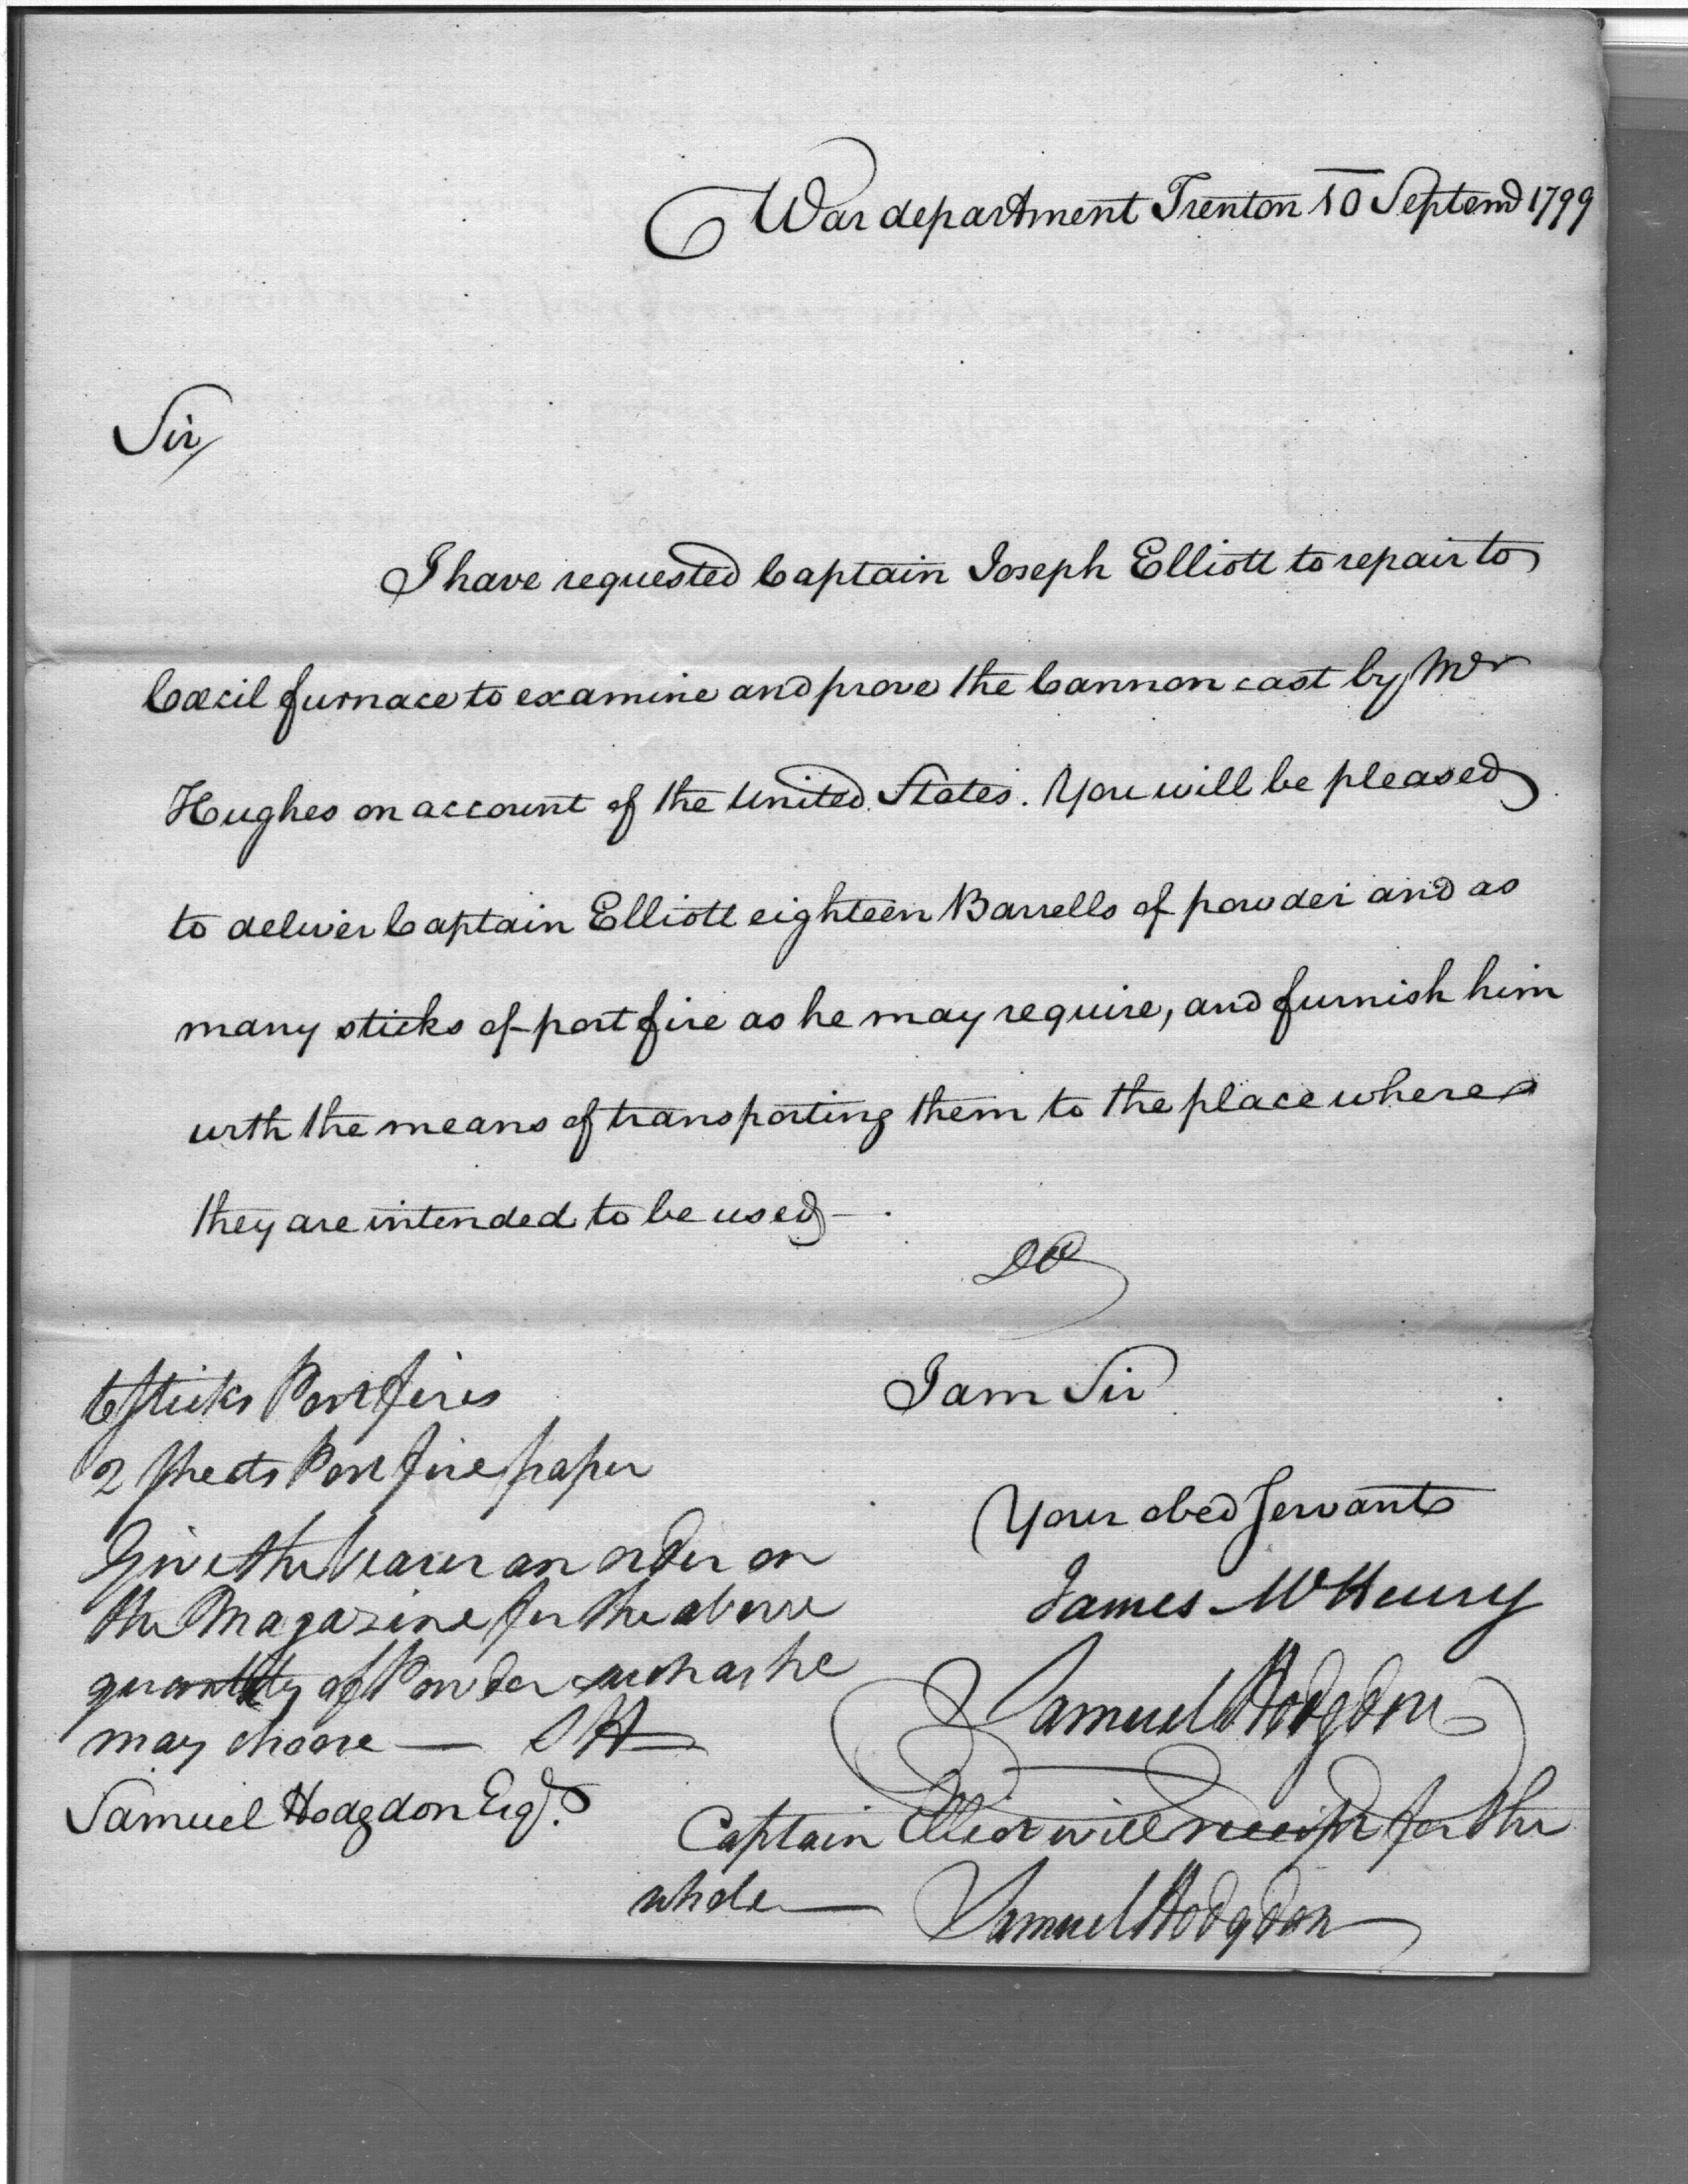 War department Trenton 10 Septem 1799
Sir,
I have requested Captain Joseph Elliott to repair to
Cæcil furnace to examine and prove the Cannon cast by Mr
Hughes on account of the United States. You will be pleased
to deliver Captain Elliott eighteen Barrells of powder and as
many sticks of port fire as he may require, and furnish him
with the means of transporting them to the place where
they are intended to be used —.
I am Sir
Your obed Servant
James McHenry
Samuel Hodgdon
6 Sticks Portfires
2 Sheets Port fire paper
Give the bearer an order on
the Magazine for the above
quantity of Powder such as he
may choose — SH
Samuel Hodgdon Esqr.
Captain Elliot will receipt for the
whole — Samuel Hodgdon